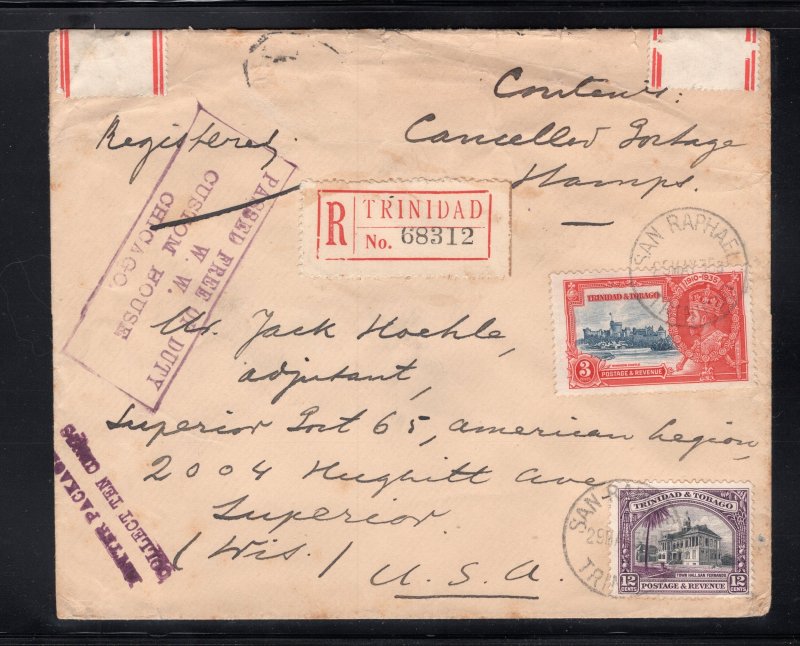 Contents:
Cancelled Postage
Stamps.
Registered.
PASSED FREE OF DUTY
W. W.
CUSTOM HOUSE
CHICAGO.
R
TRINIDAD
No. 68312
SAN RAPHAEL
1910-1935
TRINIDAD & TOBAGO
3
POSTAGE & REVENUE
Mr. Jack Hoehle,
adjutant,
Superior Post 65, american Legion,
2004 Hughitt Ave
Superior
(Wis.)
U.S.A.
PACKAGE
COLLECT TEN CENTS
SAN-RAP
29
TRIN
TRINIDAD & TOBAGO
TOWN HALL, SAN FERNANDO
12 CENTS
12 CENTS
POSTAGE & REVENUE